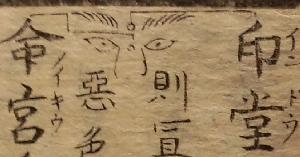 印堂
インドウ
則冝
惡色
命宮
メイキウ